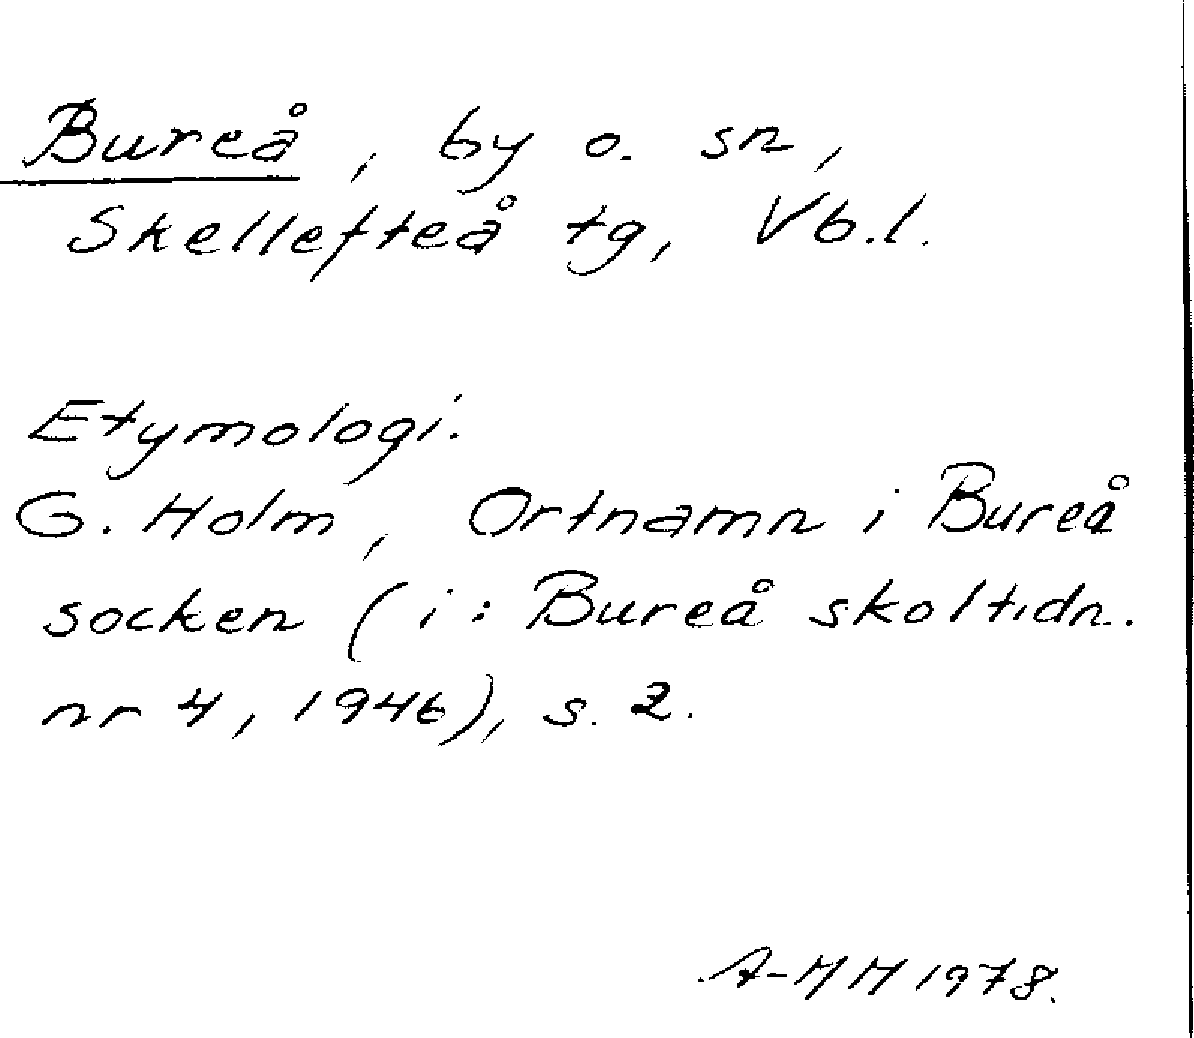 Bureå, by o. sn,
Skellefteå tg, Vb.l.
Etymologi.
G. Holm, Ortnamn i Bureå
socken (i: Bureå skoltidn.
nr 4, 1946), s. 2.
A-MM 1978.